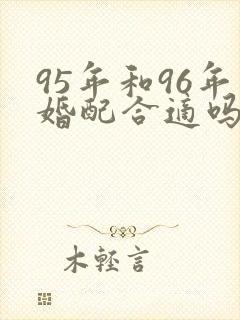 95年和96年
婚配合适吗
木轻言